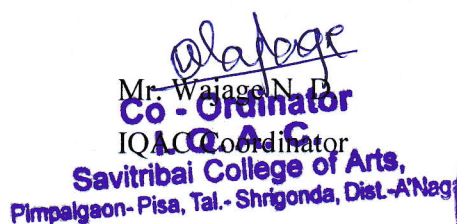 Wajage
Mr. Wajage N. D
Co - Ordinator
I. Q. A. C.
IQAC Coordinator
Savitribai College of Arts,
Pimpalgaon- Pisa, Tal.- Shrigonda, Dist.-A'Nag